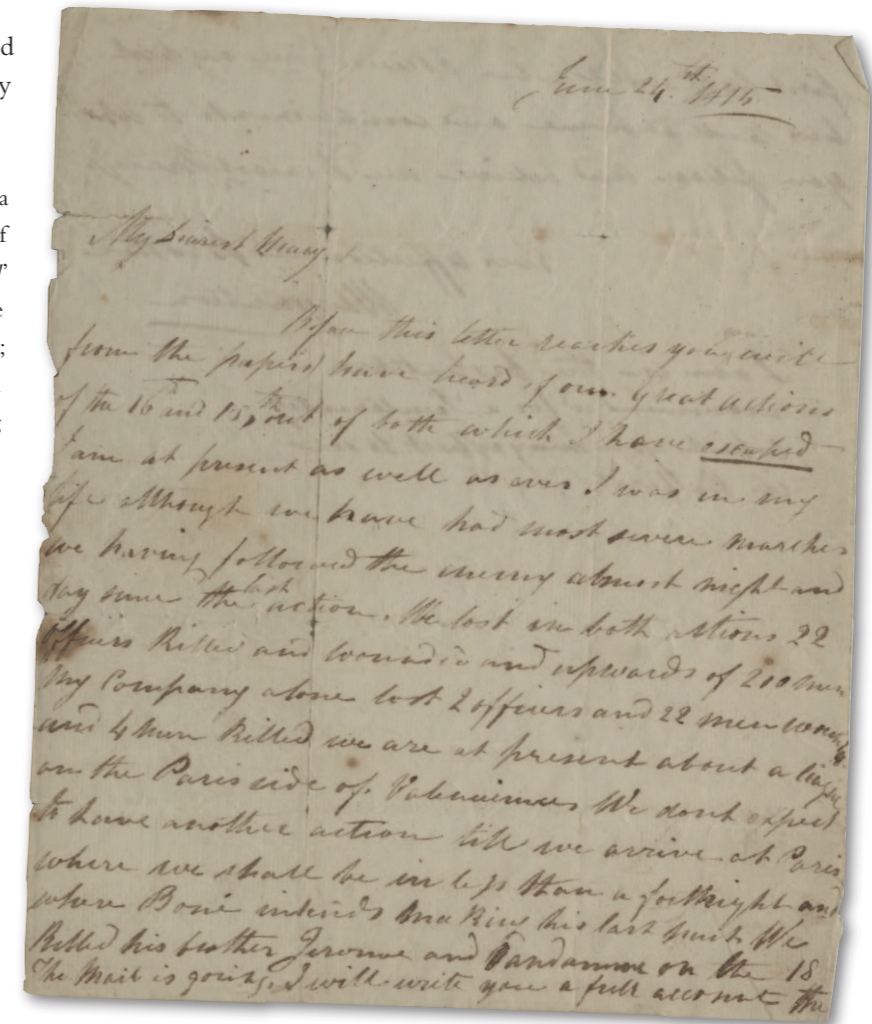 d
y
a
f
r
e
;
;
June 24.st 1815
My Dearest Mary,
Before this letter reaches you, you will
from the papers have heard of our great actions
of the 16th and 18th, out of both which I have escaped
I am at present as well as ever I was in my
life although we have had most severe marches
we having followed the enemy almost night and
day since the last action. We lost in both actions 22
Officers Killed and wounded and upwards of 200 men
My Company alone lost 2 officers and 22 men
and 4 Men Killed we are at present about a league
on the Paris side of Valenciennes We dont expect
to have another action till we arrive at Paris
where we shall be in less than a fortnight and
where Bonie intends making his last We
Killed his brother Jerome and Vandamme on the 18
The Mail is going, I will write you a full account the